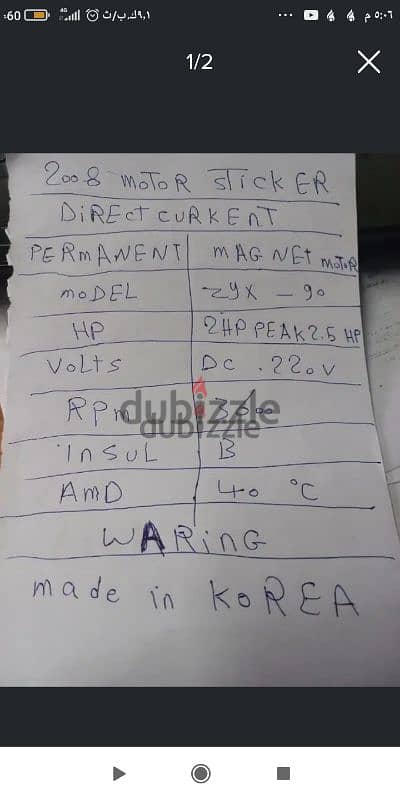 ٩,١ك.ب/ث 4G 60 ٥:٠٦ م
1/2
2008 MOTOR STICKER
DIRECT CURKENT
PERMANENT MAGNET MOTOR
MODEL ZYX - 90
HP 2HP PEAK 2.5 HP
VOLTS DC . 220V
RPM
INSUL B
AMD 40 °C
WARING
made in KOREA
dubizzle
dubizzle